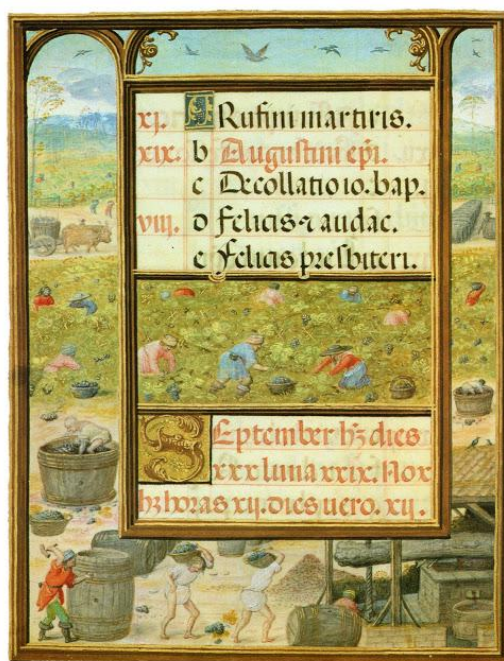 xj. A Rufini martiris.
xix. b Augustini epi.
c Decollatio io. bap.
viii. d felicis ⁊ audac.
e felicis presbiteri.
September hꝫ dies
xxx luna xxix. Nox
hꝫ horas xij. dies uero. xij.